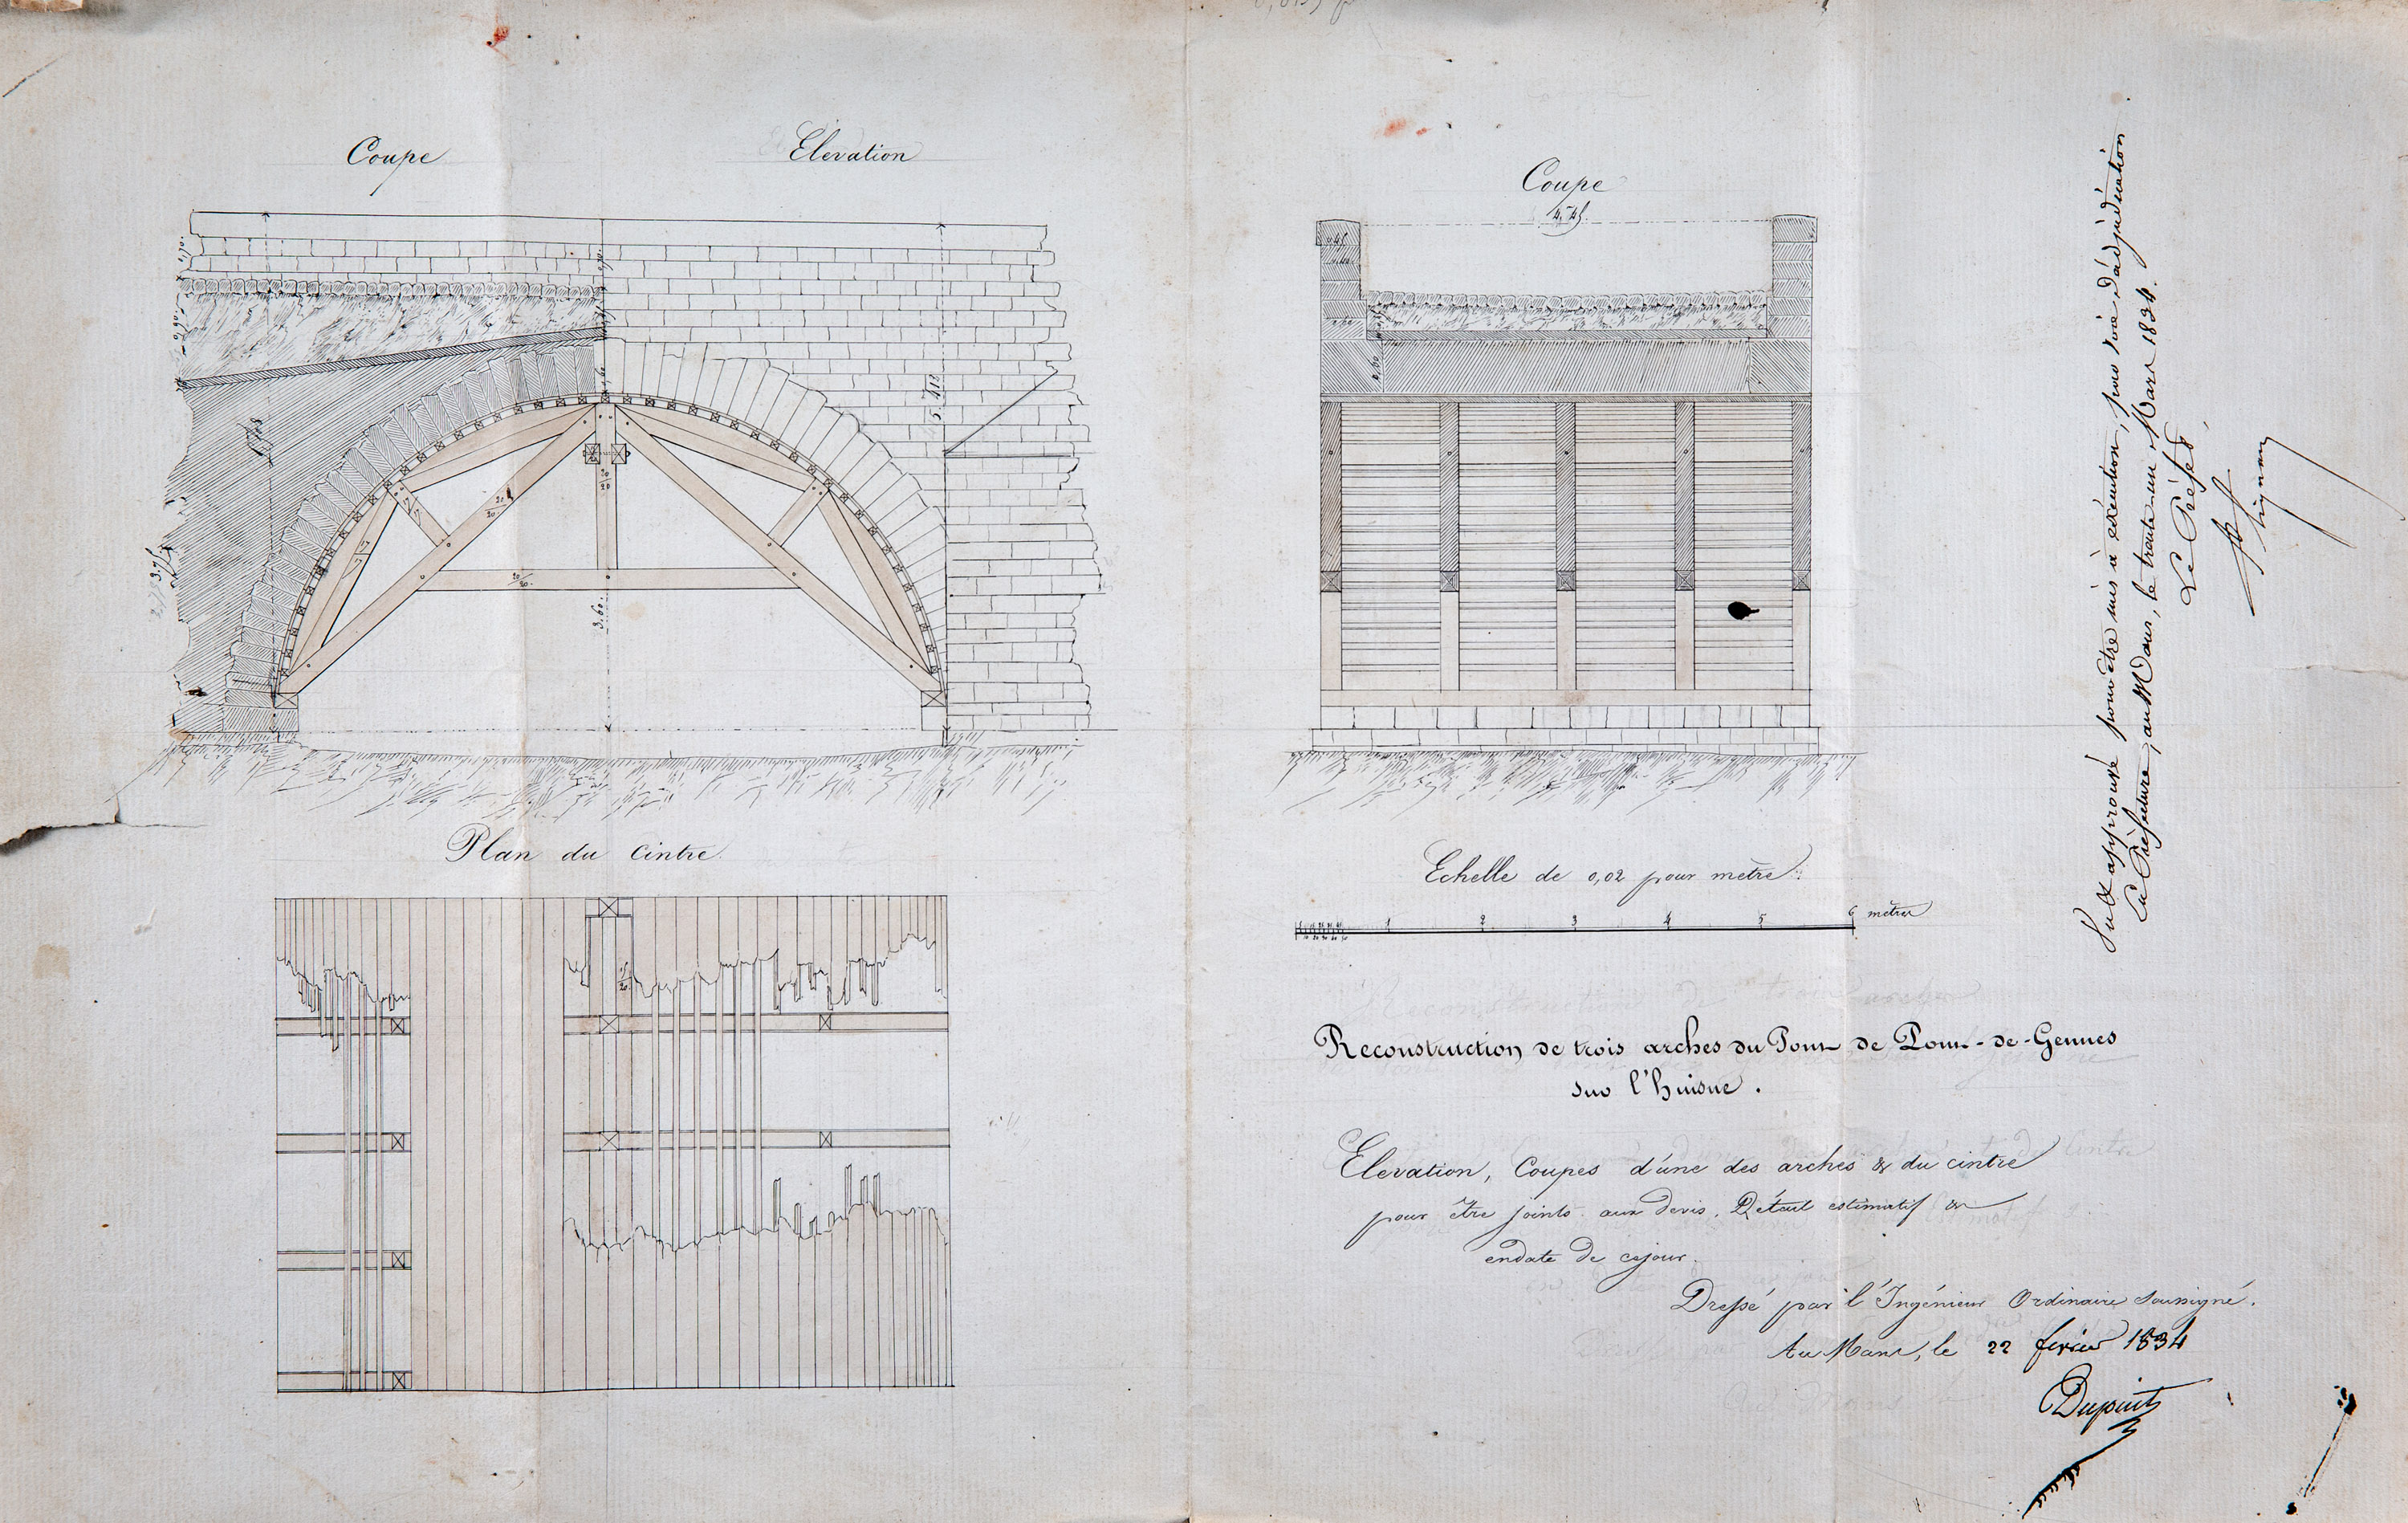 Coupe
Elevation
20/20
20/20
20/20
3.60.
5.410
Plan du Cintre.
Coupe
4.45.
0,60
Echelle de 0,02 pour mètre.
1 2 3 4 5 6 mètres
Reconstruction de trois arches du Pont de Pont-de-Gennes
sur l'huisne.
Elevation, Coupes d'une des arches & du cintre
pour être joints aux devis, Détail estimatif &
en date de ce jour.
Dressé par l'Ingénieur Ordinaire soussigné.
Au Mans, le 22 fevrier 1834
Dupuit
Vu & approuvé pour être mis à exécution, par voie d'adjudication
La Préfecture, au Mans, le trente-un Mars 1834.
Le Préfet,